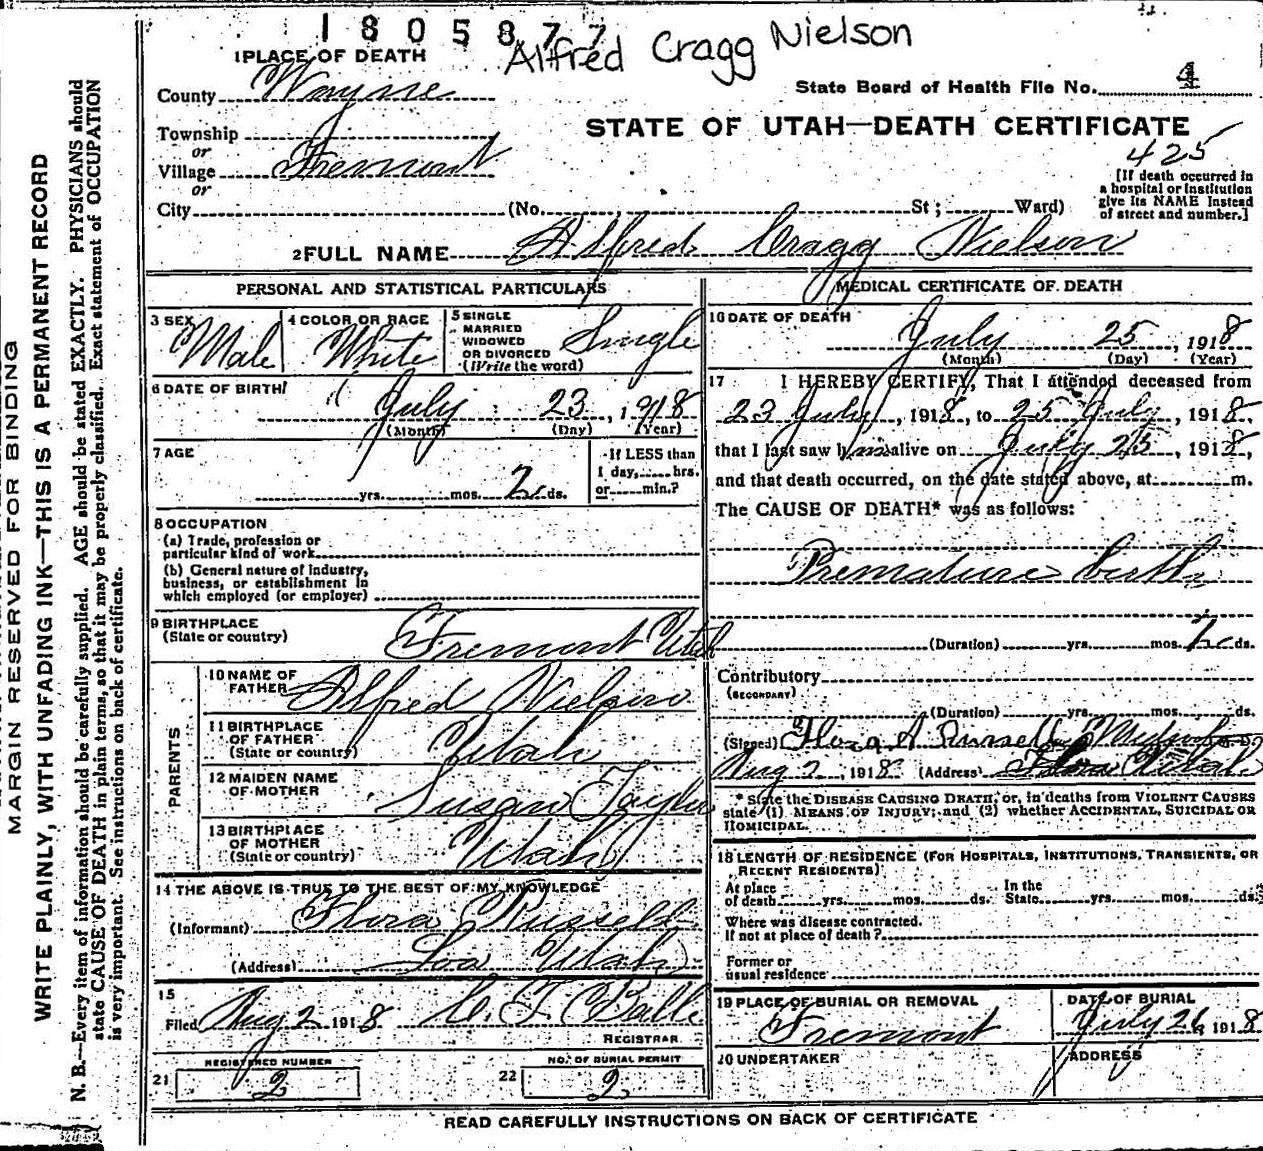 1805877
Alfred Cragg Nielson
1 PLACE OF DEATH
County Wayne
State Board of Health File No. 4
Township
or
STATE OF UTAH—DEATH CERTIFICATE
425
Village Fremont
or
[If death occurred in
a hospital or institution
give its NAME instead
of street and number.]
City (No. St; Ward)
2 FULL NAME Alfred Cragg Nielson
PERSONAL AND STATISTICAL PARTICULARS
3 SEX Male
4 COLOR OR RACE White
5 SINGLE
MARRIED
WIDOWED
OR DIVORCED
(Write the word)
Single
6 DATE OF BIRTH
July 23, 1918
(Month) (Day) (Year)
7 AGE
yrs. mos. 2 ds.
If LESS than
1 day, hrs.
or min.?
8 OCCUPATION
(a) Trade, profession or
particular kind of work
(b) General nature of industry,
business, or establishment in
which employed (or employer)
9 BIRTHPLACE
(State or country)
Fremont Utah
PARENTS
10 NAME OF
FATHER
Alfred Nielson
11 BIRTHPLACE
OF FATHER
(State or country)
Utah
12 MAIDEN NAME
OF MOTHER
Susan Taylor
13 BIRTHPLACE
OF MOTHER
(State or country)
Utah
14 THE ABOVE IS TRUE TO THE BEST OF MY KNOWLEDGE
(Informant) Flora Russell
(Address) Loa Utah
15
Filed Aug 2 1918
REGISTRAR
REGISTERED NUMBER
21 2
NO. OF BURIAL PERMIT
22 2
MEDICAL CERTIFICATE OF DEATH
16 DATE OF DEATH
July 25, 1918
(Month) (Day) (Year)
17 I HEREBY CERTIFY, That I attended deceased from
23 July, 1918, to 25 July, 1918,
that I last saw him alive on July 25, 1918,
and that death occurred, on the date stated above, at m.
The CAUSE OF DEATH* was as follows:
Premature birth
(Duration) yrs. mos. 2 ds.
Contributory
(SECONDARY)
(Duration) yrs. mos. ds.
(Signed) Flora A. Russell
Aug 2, 1918 (Address)
* State the DISEASE CAUSING DEATH, or, in deaths from VIOLENT CAUSES
state (1) MEANS OF INJURY; and (2) whether ACCIDENTAL, SUICIDAL OR
HOMICIDAL.
18 LENGTH OF RESIDENCE (FOR HOSPITALS, INSTITUTIONS, TRANSIENTS, OR
RECENT RESIDENTS)
At place
of death yrs. mos. ds.
In the
State yrs. mos. ds.
Where was disease contracted.
If not at place of death?
Former or
usual residence
19 PLACE OF BURIAL OR REMOVAL
Fremont
DATE OF BURIAL
July 26 1918
20 UNDERTAKER
ADDRESS
READ CAREFULLY INSTRUCTIONS ON BACK OF CERTIFICATE
MARGIN RESERVED FOR BINDING
WRITE PLAINLY, WITH UNFADING INK—THIS IS A PERMANENT RECORD
N. B.—Every item of information should be carefully supplied. AGE should be stated EXACTLY. PHYSICIANS should
state CAUSE OF DEATH in plain terms, so that it may be properly classified. Exact statement of OCCUPATION
is very important. See instructions on back of certificate.